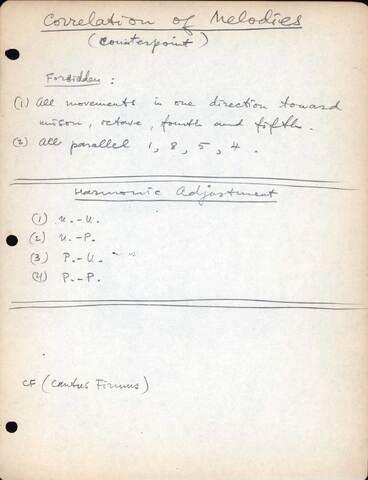 Correlation of Melodies
(Counterpoint)
Forbidden :
(1) All movements in one direction toward
unison, octave, fourth and fifth.
(2) All parallel 1, 8, 5, 4.
Harmonic Adjustment
(1) U.-U.
(2) U.-P.
(3) P.-U. " "
(4) P.-P.
CF (Cantus Firmus)